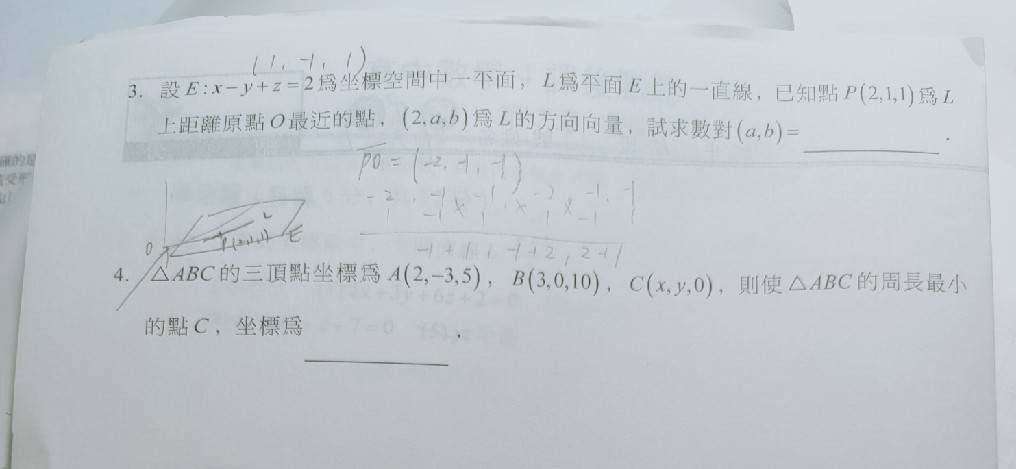 (1, -1, 1)
3. 設E:x-y+z=2爲坐標空間中一平面，L爲平面E上的一直線，已知點P(2,1,1)爲L
上距離原點O最近的點，(2,a,b)爲L的方向向量，試求數對(a,b)=
PO = (-2, -1, -1)
-1+1, 1+2, 2+1
O
L
E
4. △ABC的三頂點坐標爲A(2,-3,5)，B(3,0,10)，C(x,y,0)，則使△ABC的周長最小
的點C，坐標爲